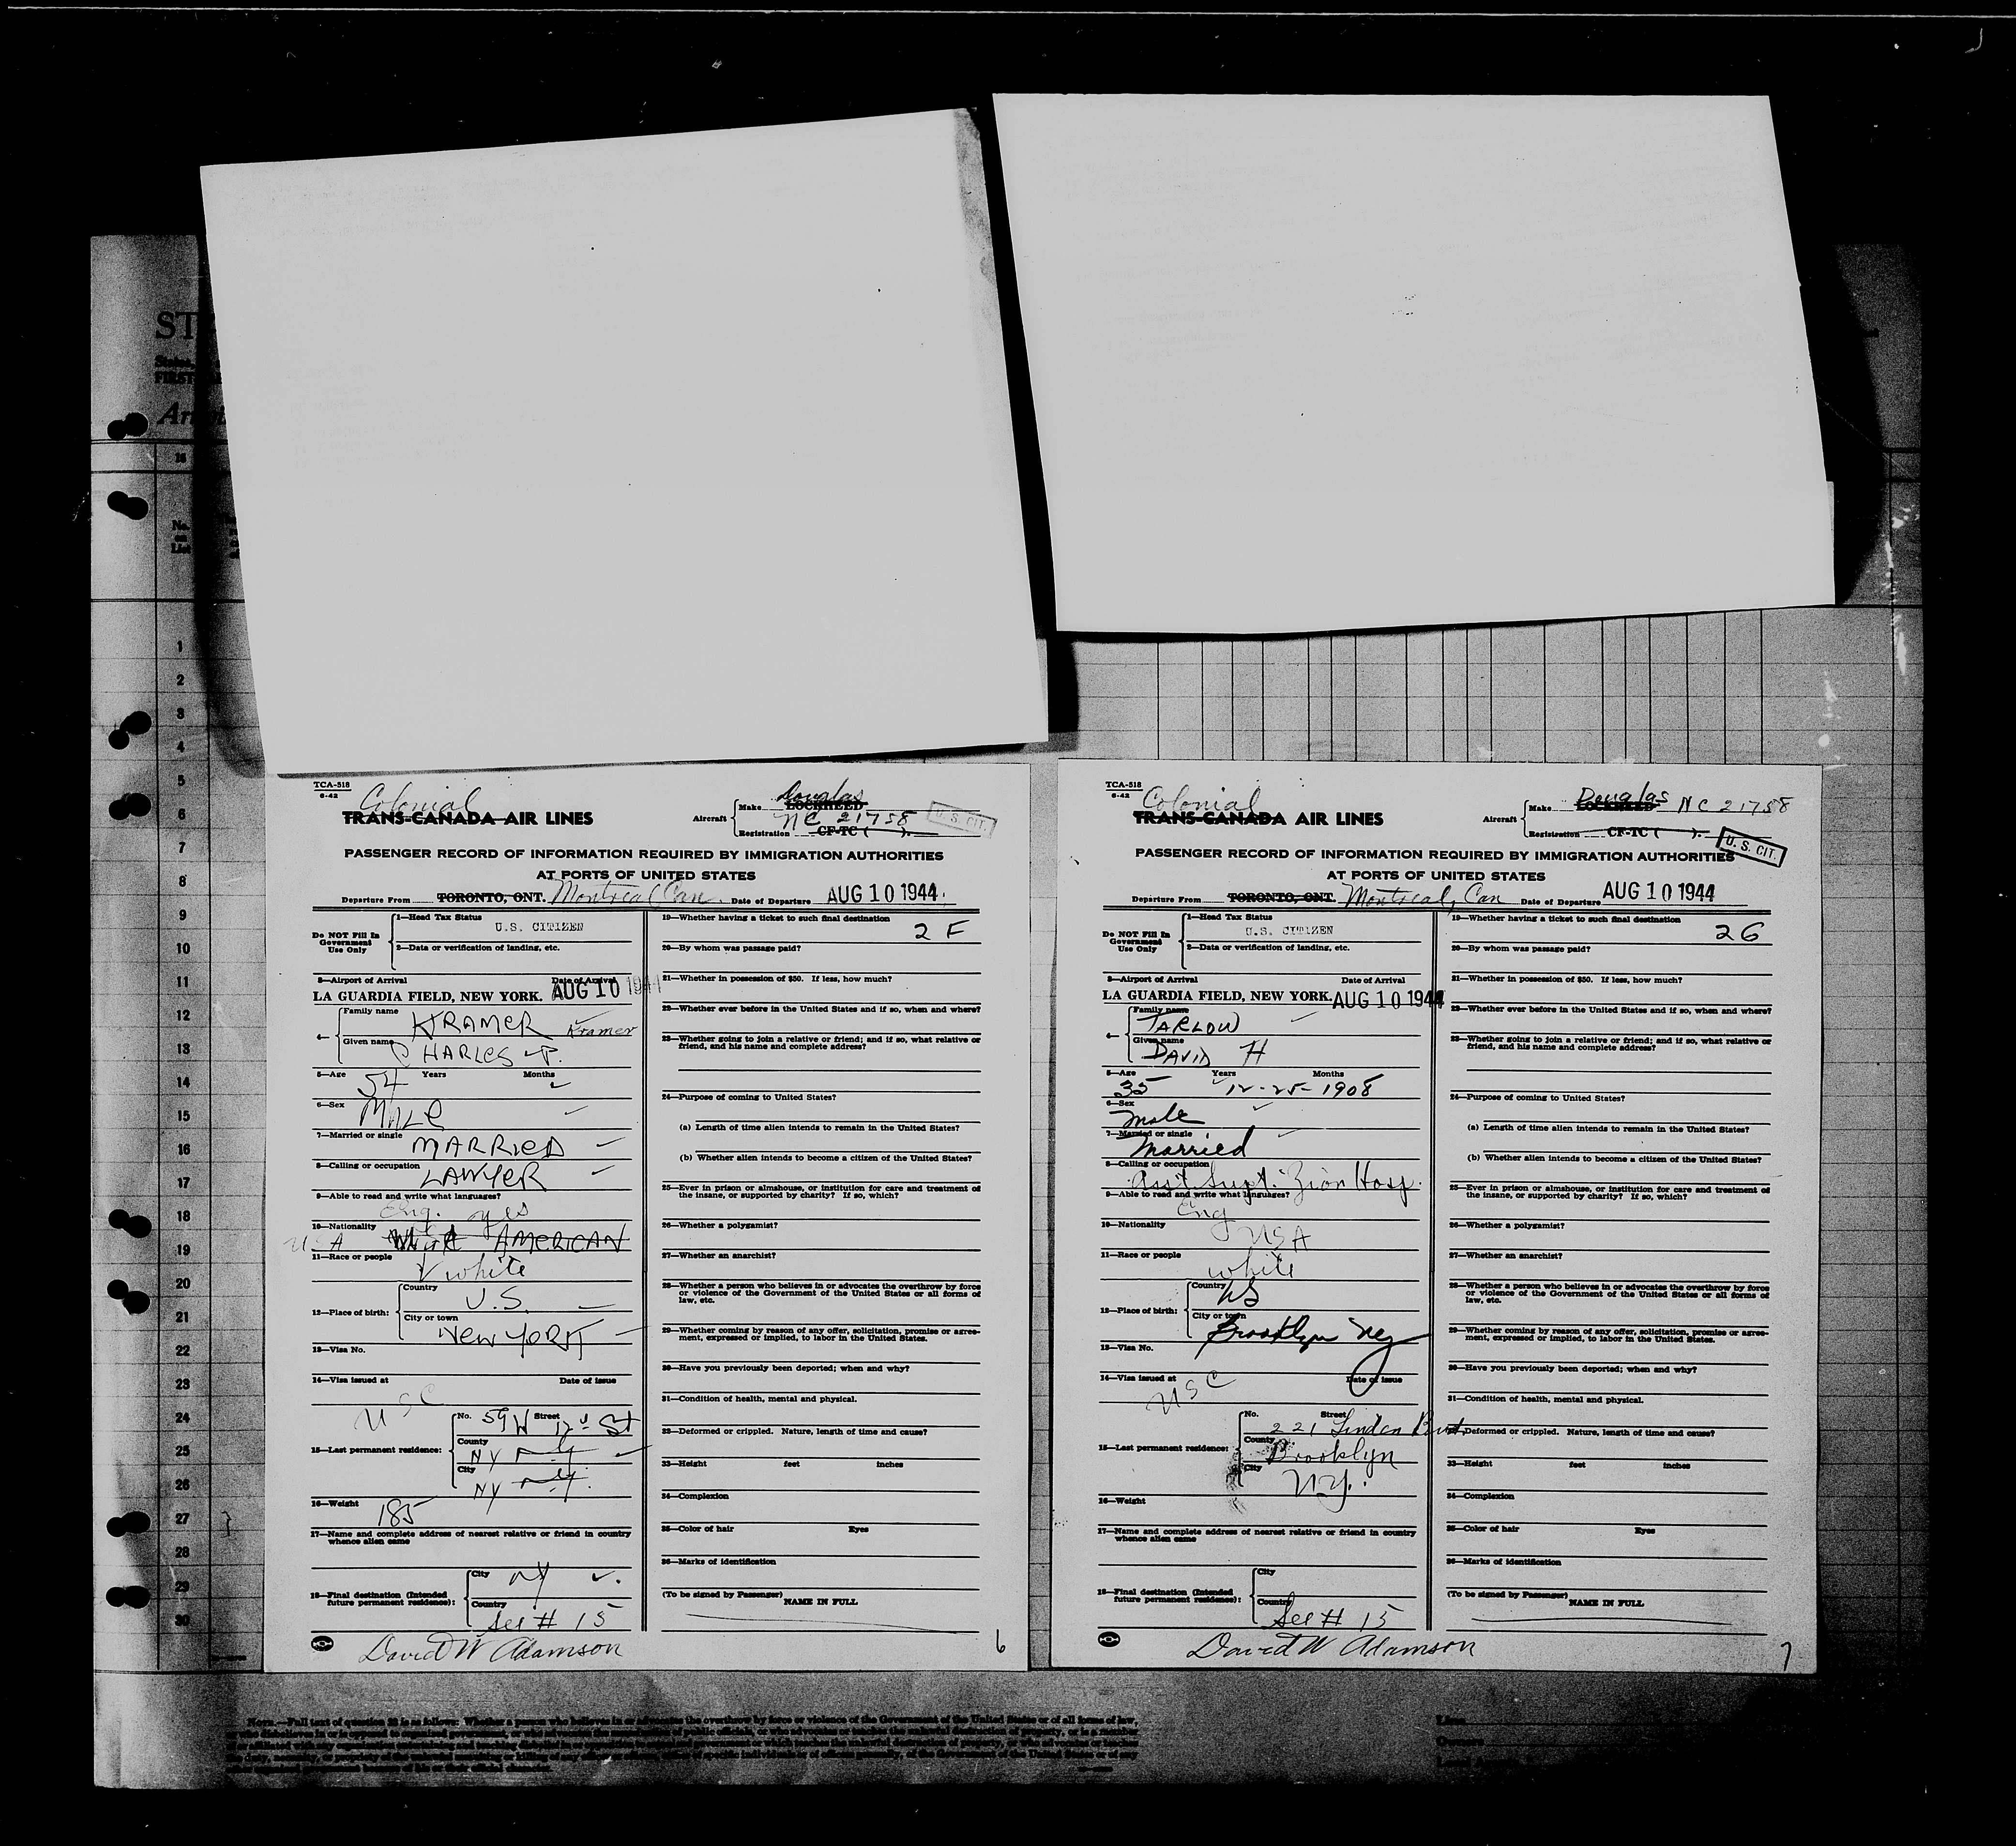 ST
FIRST
1
2
3
4
5
6
7
8
9
10
11
12
13
14
15
16
17
18
19
20
21
22
23
24
25
26
27
28
29
30
TCA-518
6-42
Colonial
TRANS-CANADA AIR LINES
Aircraft
Make Douglas LOCKHEED
Registration NC 21758 CF-TC ( ).
U. S. CIT.
PASSENGER RECORD OF INFORMATION REQUIRED BY IMMIGRATION AUTHORITIES
AT PORTS OF UNITED STATES
Departure From TORONTO, ONT. Montreal, Can. Date of Departure AUG 10 1944
Do NOT Fill In Government Use Only
1—Head Tax Status
U.S. CITIZEN
2—Data or verification of landing, etc.
3—Airport of Arrival Date of Arrival
LA GUARDIA FIELD, NEW YORK. AUG 10 1944
4—
Family name KRAMER Kramer
Given name CHARLES P.
5—Age 54 Years Months
6—Sex MALE
7—Married or single MARRIED
8—Calling or occupation LAWYER
9—Able to read and write what languages?
Eng. yes
10—Nationality
U.S.A. AMERICAN
11—Race or people
white
12—Place of birth:
Country
U.S.
City or town
NEW YORK
13—Visa No.
14—Visa issued at Date of issue
USC
15—Last permanent residence:
No. 59 W Street 12 St
County
NY
City
NY
16—Weight 185
17—Name and complete address of nearest relative or friend in country
whence alien came
18—Final destination (Intended
future permanent residence):
City NY
Country
See # 15
David W Adamson
19—Whether having a ticket to such final destination
2 F
20—By whom was passage paid?
21—Whether in possession of $50. If less, how much?
22—Whether ever before in the United States and if so, when and where?
23—Whether going to join a relative or friend; and if so, what relative or
friend, and his name and complete address?
24—Purpose of coming to United States?
(a) Length of time alien intends to remain in the United States?
(b) Whether alien intends to become a citizen of the United States?
25—Ever in prison or almshouse, or institution for care and treatment of
the insane, or supported by charity? If so, which?
26—Whether a polygamist?
27—Whether an anarchist?
28—Whether a person who believes in or advocates the overthrow by force
or violence of the Government of the United States or all forms of
law, etc.
29—Whether coming by reason of any offer, solicitation, promise or agree-
ment, expressed or implied, to labor in the United States.
30—Have you previously been deported; when and why?
31—Condition of health, mental and physical.
32—Deformed or crippled. Nature, length of time and cause?
33—Height feet inches
34—Complexion
35—Color of hair Eyes
36—Marks of identification
(To be signed by Passenger)
NAME IN FULL
6
TCA-518
6-42
Colonial
TRANS-CANADA AIR LINES
Aircraft
Make Douglas LOCKHEED NC 21758
Registration CF-TC ( ).
U. S. CIT.
PASSENGER RECORD OF INFORMATION REQUIRED BY IMMIGRATION AUTHORITIES
AT PORTS OF UNITED STATES
Departure From TORONTO, ONT. Montreal, Can Date of Departure AUG 10 1944
Do NOT Fill In Government Use Only
1—Head Tax Status
U.S. CITIZEN
2—Data or verification of landing, etc.
3—Airport of Arrival Date of Arrival
LA GUARDIA FIELD, NEW YORK. AUG 10 1944
4—
Family name
TARLOW
Given name
DAVID H
5—Age Years Months
35 12-25-1908
6—Sex
Male
7—Married or single
Married
8—Calling or occupation
Ass't Supt. Zion Hosp.
9—Able to read and write what languages?
Eng
10—Nationality
USA
11—Race or people
white
12—Place of birth:
Country
US
City or town
Brooklyn NY
13—Visa No.
14—Visa issued at Date of issue
USC
15—Last permanent residence:
No. Street
221 Linden Blvd,
County
Brooklyn
City
N.Y.
16—Weight
17—Name and complete address of nearest relative or friend in country
whence alien came
18—Final destination (Intended
future permanent residence):
City
Country
See # 15
David W Adamson
19—Whether having a ticket to such final destination
2G
20—By whom was passage paid?
21—Whether in possession of $50. If less, how much?
22—Whether ever before in the United States and if so, when and where?
23—Whether going to join a relative or friend; and if so, what relative or
friend, and his name and complete address?
24—Purpose of coming to United States?
(a) Length of time alien intends to remain in the United States?
(b) Whether alien intends to become a citizen of the United States?
25—Ever in prison or almshouse, or institution for care and treatment of
the insane, or supported by charity? If so, which?
26—Whether a polygamist?
27—Whether an anarchist?
28—Whether a person who believes in or advocates the overthrow by force
or violence of the Government of the United States or all forms of
law, etc.
29—Whether coming by reason of any offer, solicitation, promise or agree-
ment, expressed or implied, to labor in the United States.
30—Have you previously been deported; when and why?
31—Condition of health, mental and physical.
Deformed or crippled. Nature, length of time and cause?
33—Height feet inches
34—Complexion
35—Color of hair Eyes
36—Marks of identification
(To be signed by Passenger)
NAME IN FULL
7